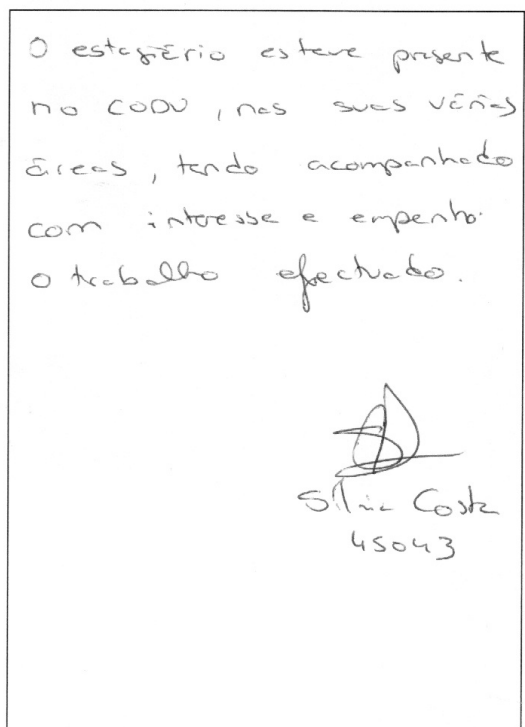 O estagiário esteve presente
no CODU, nas suas várias
áreas, tendo acompanhado
com interesse e empenho
o trabalho efectuado.
Sílvia Costa
45043